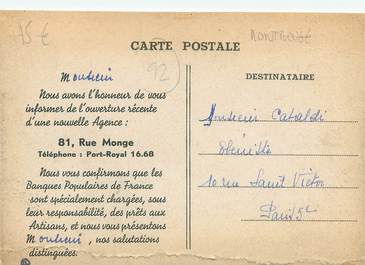 15 €
MONTROUGE
CARTE POSTALE
92
Monsieur
Nous avons l'honneur de vous
informer de l'ouverture récente
d'une nouvelle Agence :
81, Rue Monge
Téléphone : Port-Royal 16.68
Nous vous confirmons que les
Banques Populaires de France
sont spécialement chargées, sous
leur responsabilité, des prêts aux
Artisans, et nous vous présentons
Monsieur, nos salutations
distinguées.
DESTINATAIRE
Monsieur Cataldi
Ebéniste
10 rue Saint Victor
Paris 5e